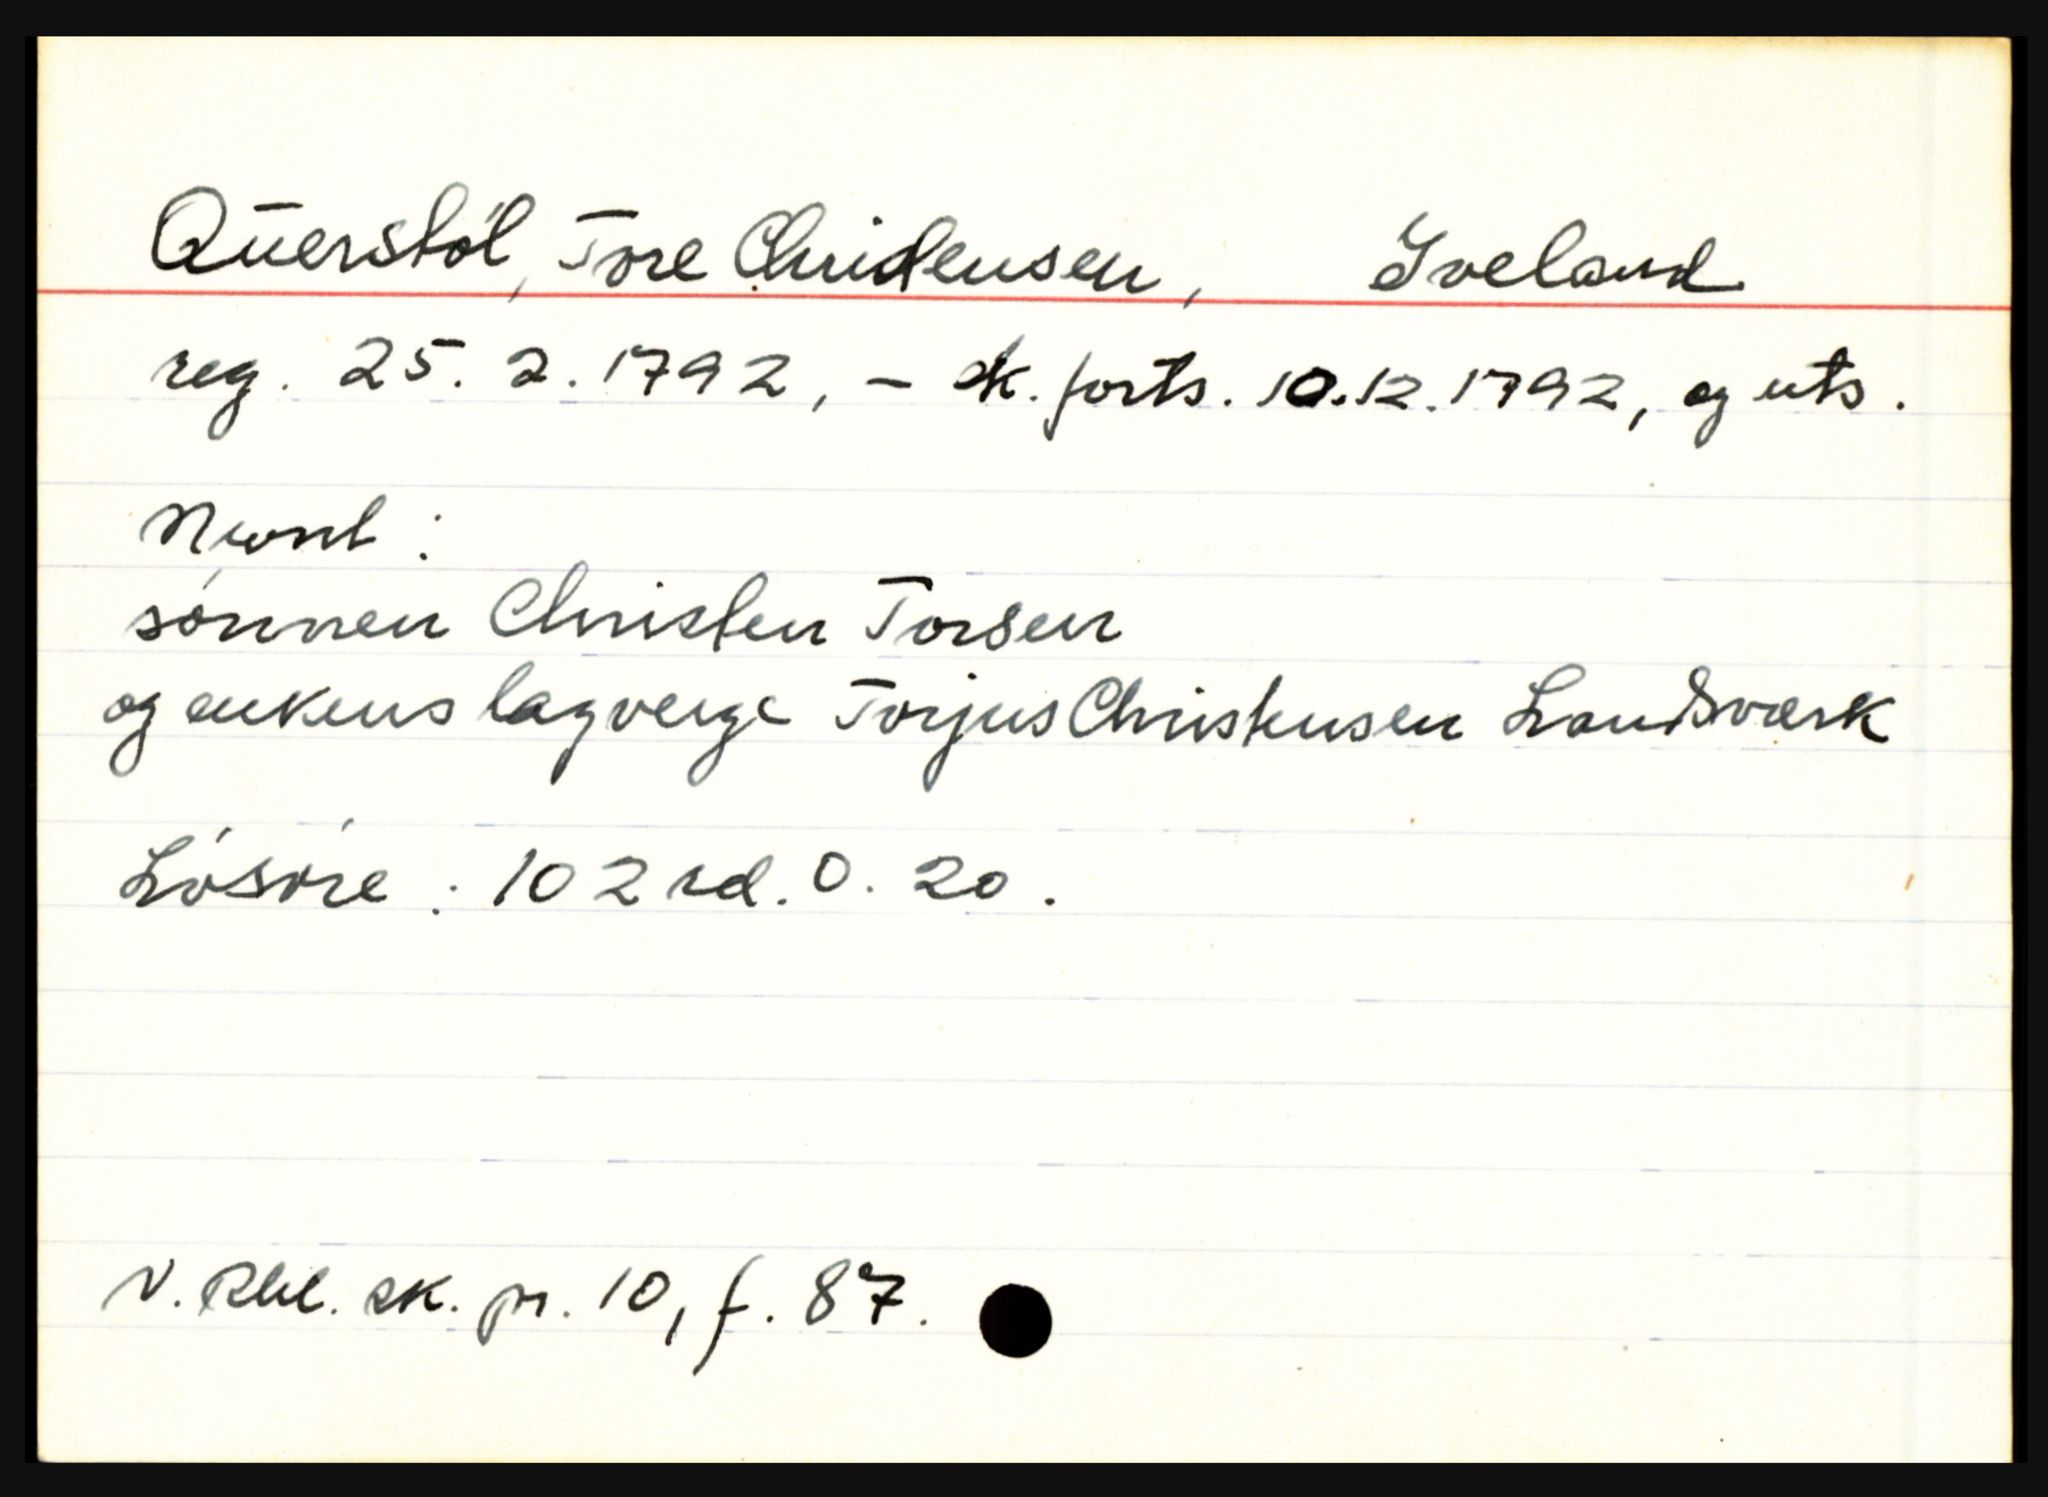 Qūerstól, Tore Christensen, Iveland
reg. 25. 2. 1792, – sk. forts. 10.12.1792, og uts.
Nevnt :
sónnen Christen Torsen
og enkens lagverge Torjus Christensen Landsværk
Lósóre : 102 rd. 0. 20.
N. Rbl. sk. pr. 10, f. 87.